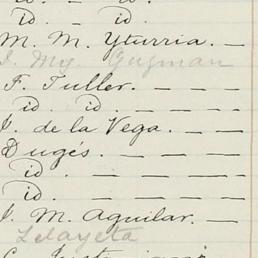 id. - id.
M. M. Yturria. —
J. My. Guzman
F. Tuller. — — —
id. id. — — — —
J. de la Vega. — —
Dugés. — — — —
id — — — —
id. — — — —
J. M. Aguilar. —
Lelayeta